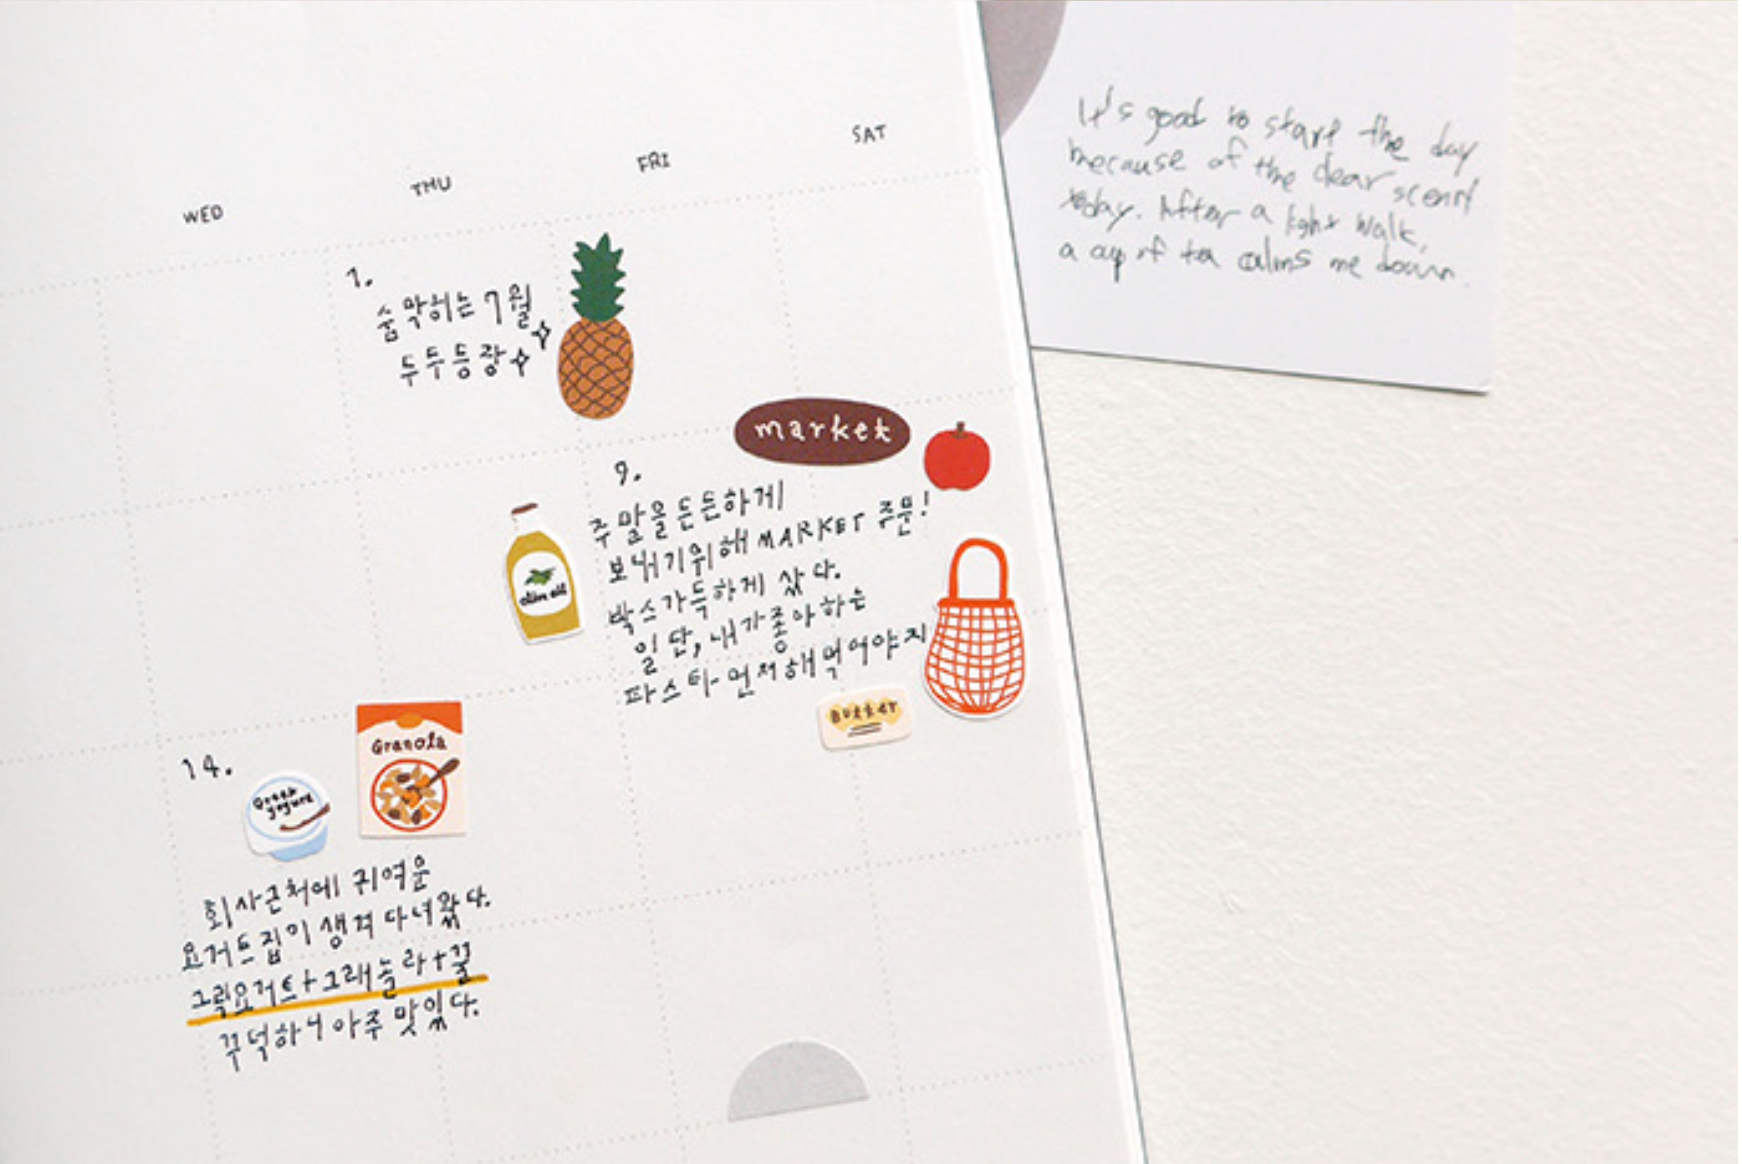 WED
THU
FRI
SAT
1.
숨막히는 7월
두두등장
market
9.
주말을 든든하게
보내기위해 MARKET 주문!
박스가득하게 샀다.
일단, 내가좋아하는
파스타 먼저해먹어야지
olive oil
BUTTER
14.
Greek
yogurt
Granola
회사근처에 귀여운
요거트집이 생겨 다녀왔다.
그릭요거트+그래놀라+꿀
꾸덕하니 아주 맛있다.
It's good to start the day
because of the clear scent
today. After a light walk,
a cup of tea calms me down.